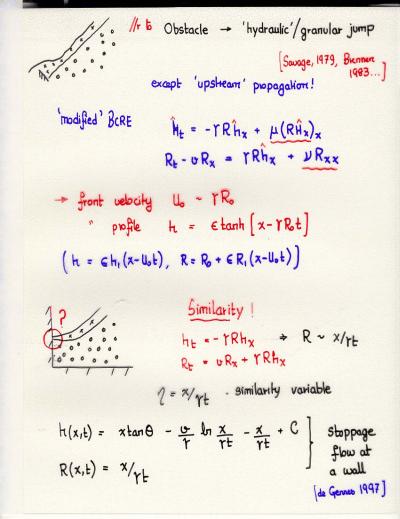 //r to Obstacle → 'hydraulic'/granular jump
[Savage, 1979, Brennen 1983...]
except 'upstream' propagation!
'modified' BCRE
Ĥt = -γRĥx + μ(RĤx)x
Rt - υRx = γRĥx + νRxx
→ front velocity U₀ ~ γR₀
" profile h = ϵ tanh[x - γR₀t]
(h = ϵh₁(x-U₀t), R = R₀ + ϵR₁(x-U₀t))
?
Similarity!
ht = -γRhx ⇒ R ~ x/γt
Rt = υRx + γRhx
η = x/γt - similarity variable
h(x,t) = x tanθ - υ/γ ln x/γt - x/γt + C
R(x,t) = x/γt
Stoppage
flow at
a wall
[de Gennes 1997]